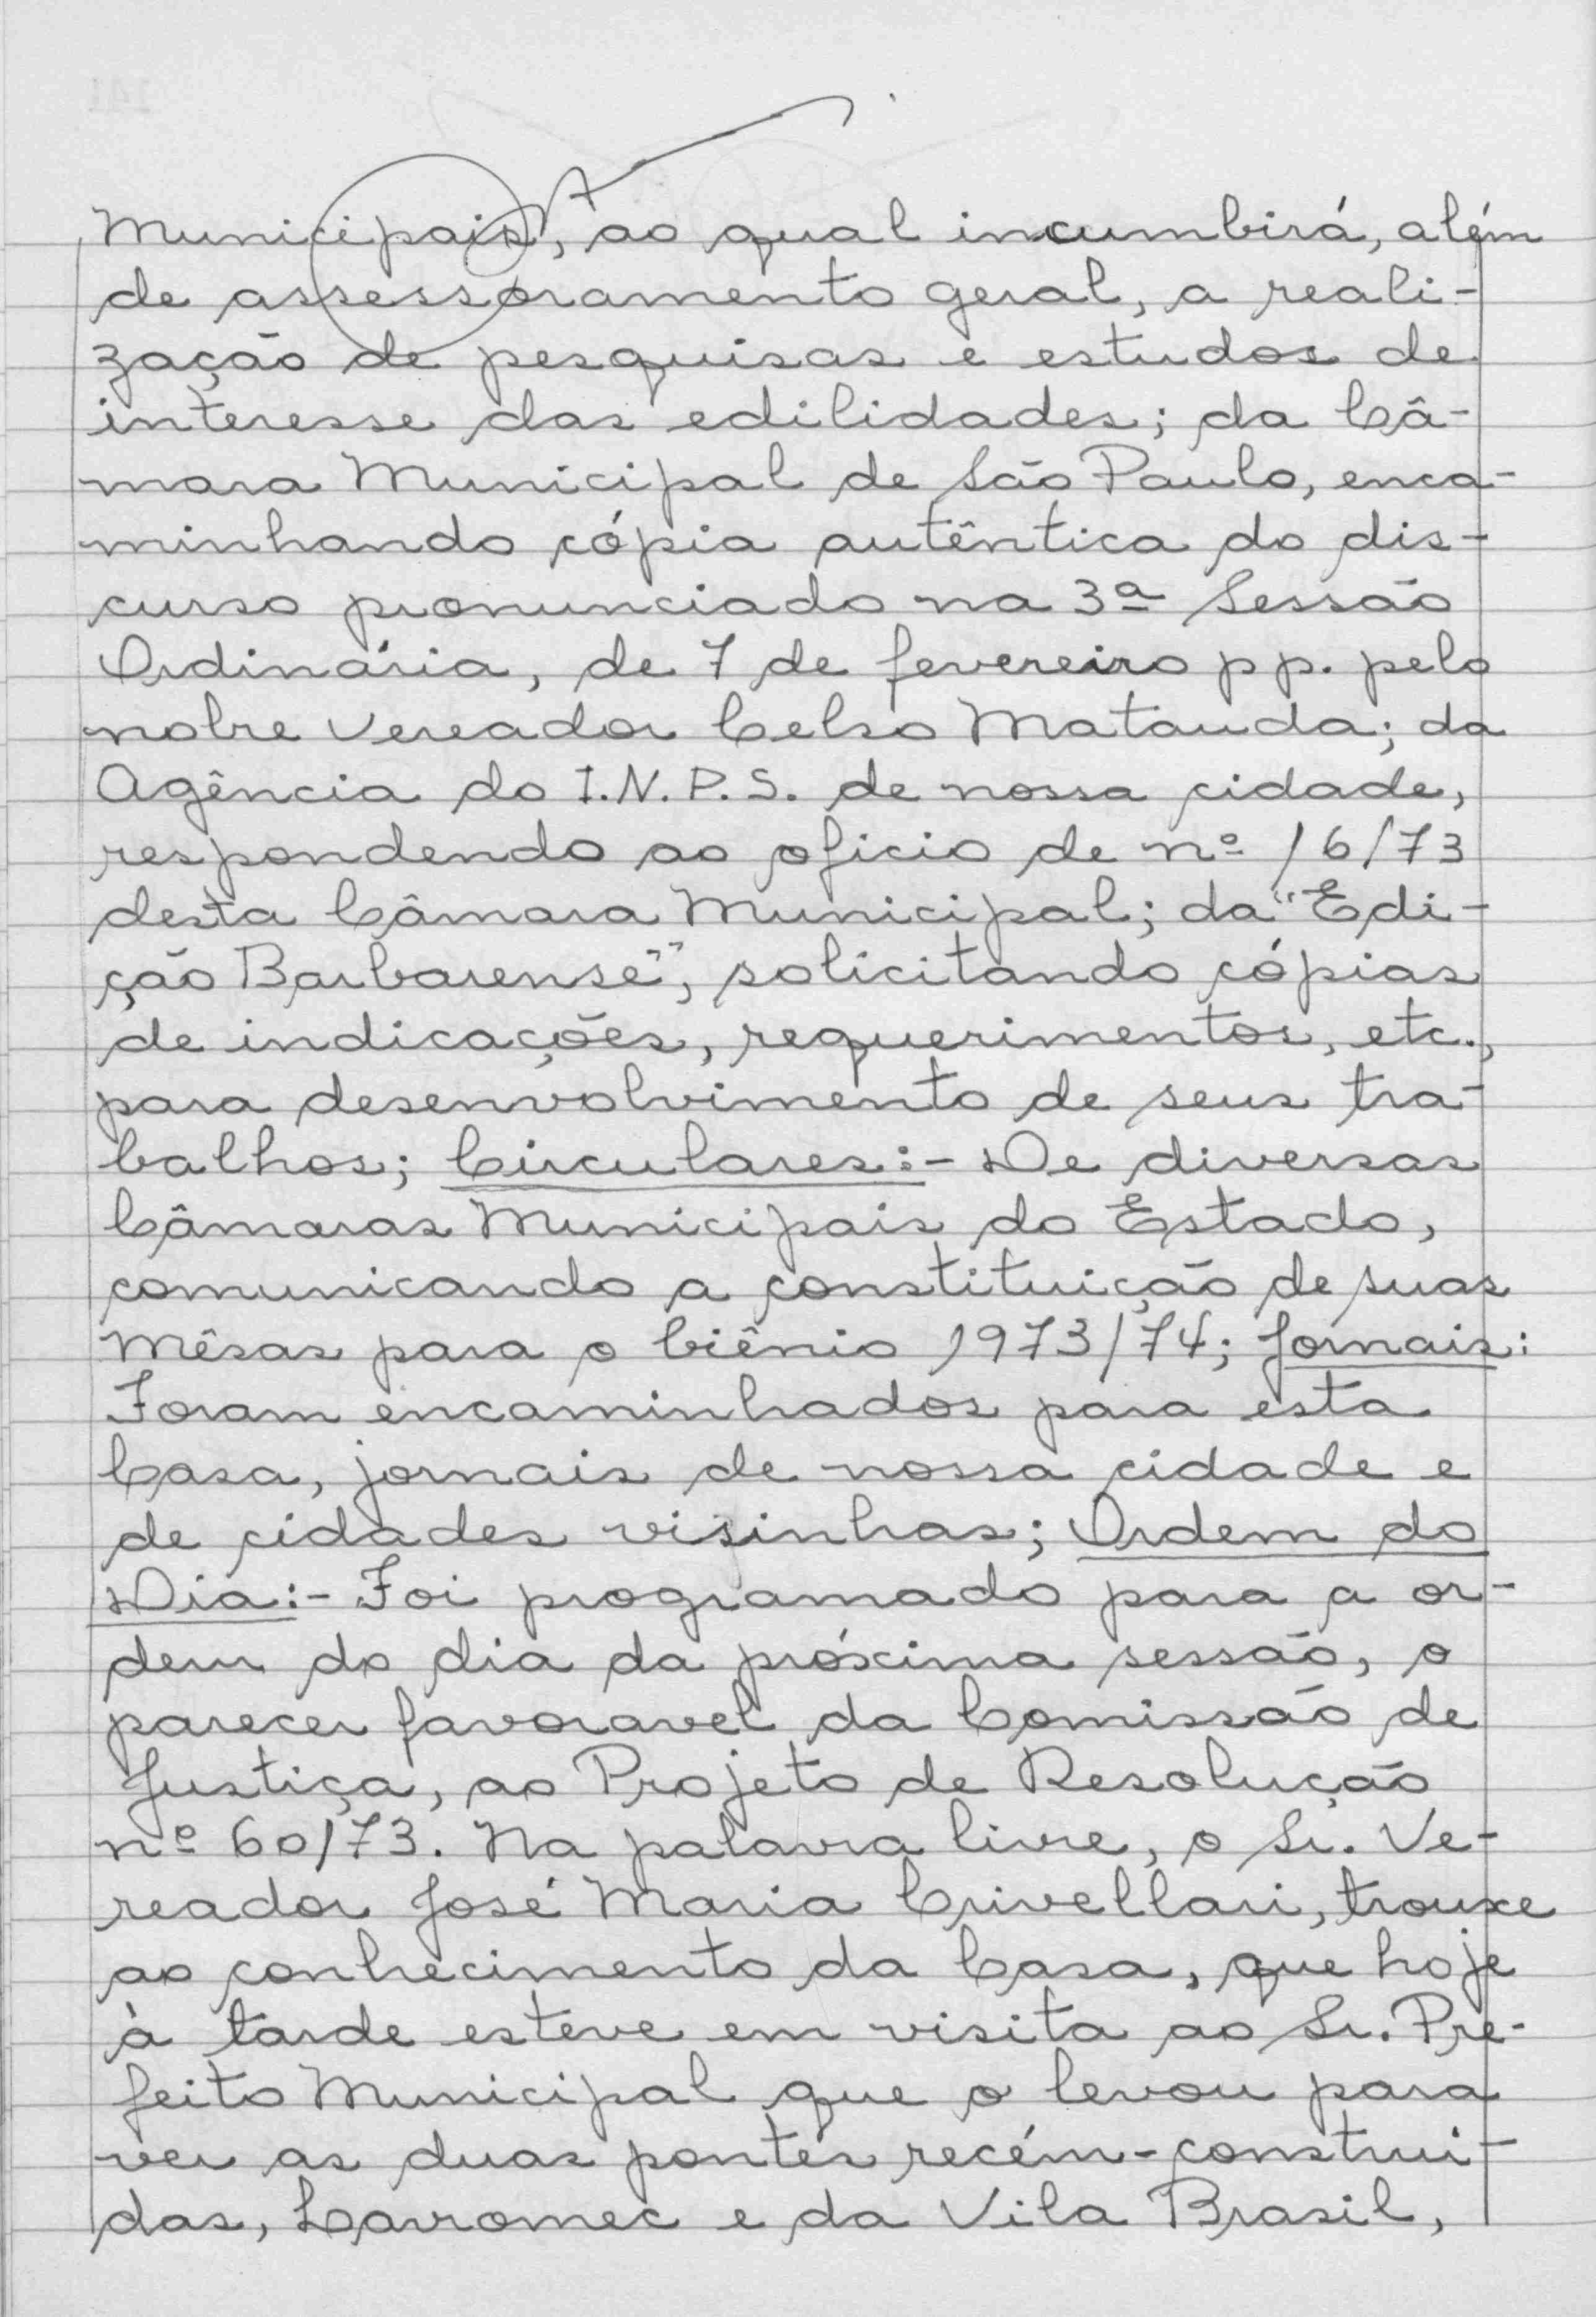 Municipais, ao qual incumbirá, além
de assessoramento geral, a reali-
zação de pesquisas e estudos de
interesse das edilidades; da Câ-
mara Municipal de São Paulo, enca-
minhando cópia autêntica do dis-
curso pronunciado na 3ª Sessão
Ordinária, de 7 de fevereiro pp. pelo
nobre Vereador Celso Matauda; da
Agência do I.N.P.S. de nossa cidade,
respondendo ao oficio de nº 16/73
desta Câmara Municipal; da "Edi-
ção Barbarense", solicitando cópias
de indicações, requerimentos, etc.,
para desenvolvimento de seus tra-
balhos; Circulares:- De diversas
Câmaras Municipais do Estado,
comunicando a constituição de suas
Mêsas para o biênio 1973/74; Jornais:
Foram encaminhados para esta
Casa, jornais de nossa cidade e
de cidades visinhas; Ordem do
Dia:- Foi programado para a or-
dem do dia da próxima sessão, o
parecer favoravel da Comissão de
Justiça, ao Projeto de Resolução
nº 60/73. Na palavra livre, o Sr. Ve-
reador José Maria Crivellari, trouxe
ao conhecimento da Casa, que hoje
à tarde esteve em visita ao Sr. Pre-
feito Municipal que o levou para
ver as duas pontes recém-construi-
das, Lavromec e da Vila Brasil,